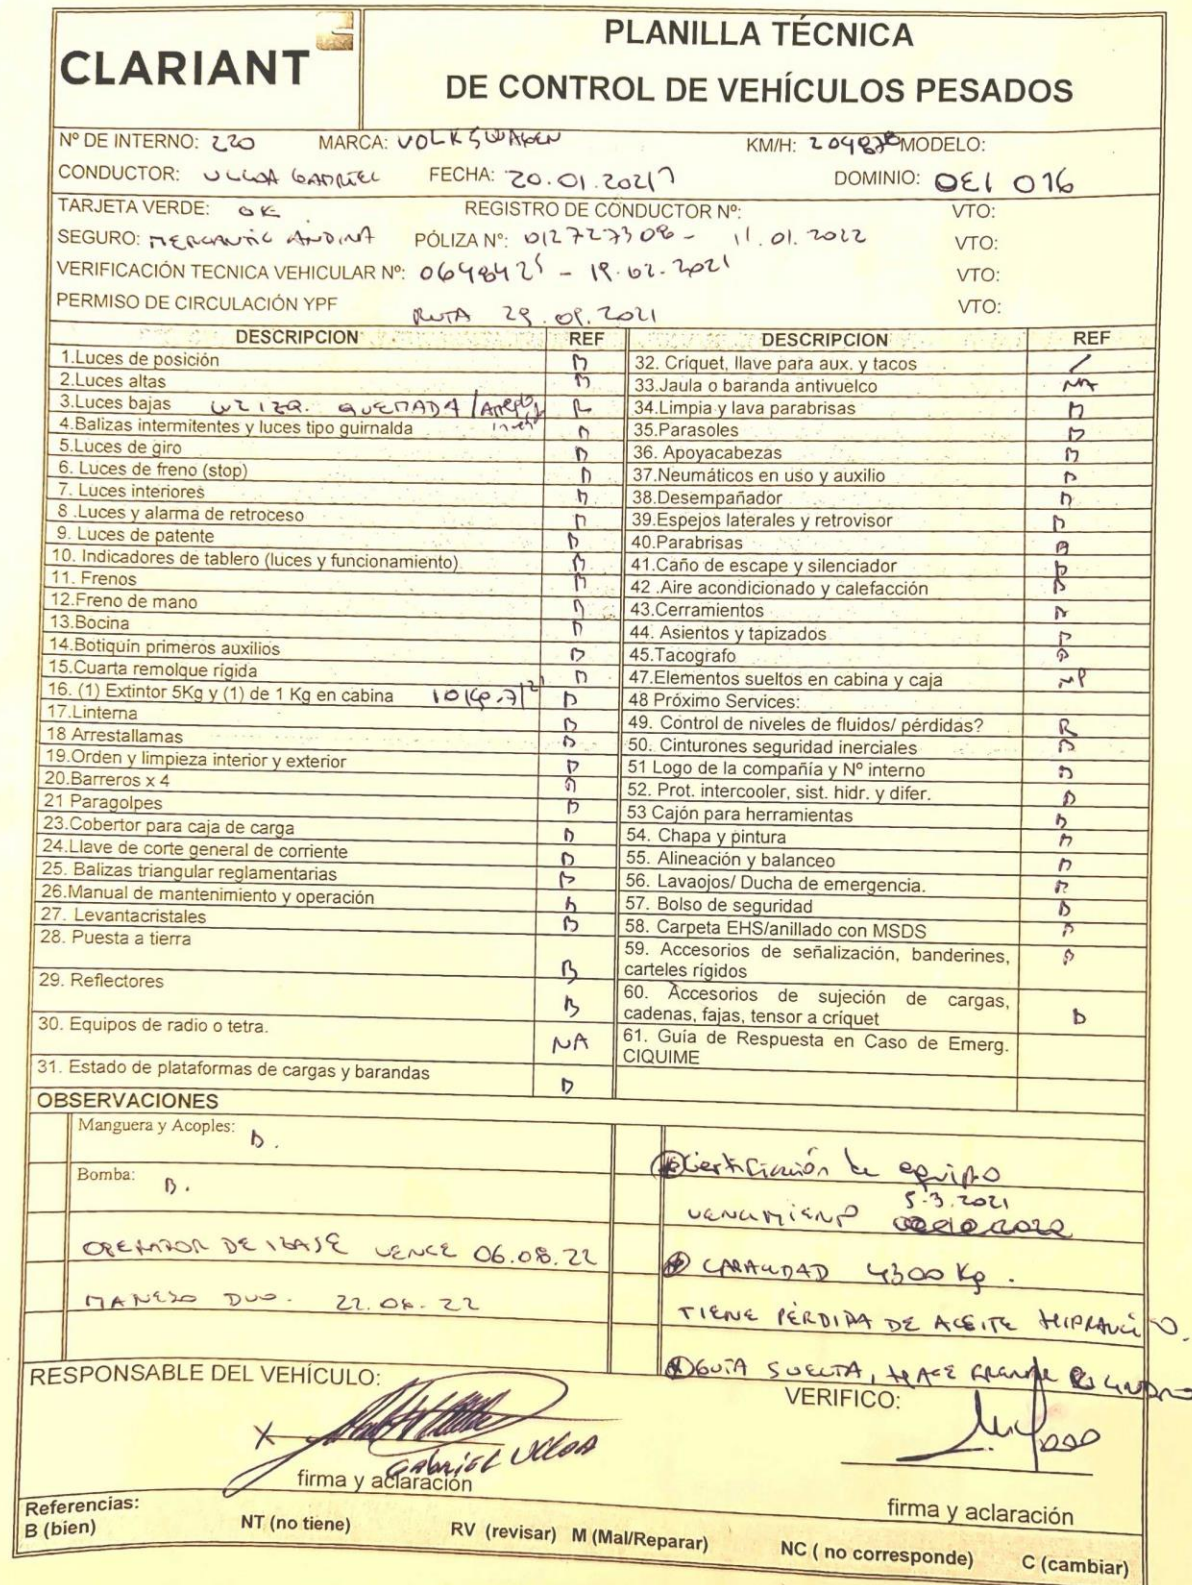 CLARIANT
PLANILLA TÉCNICA
DE CONTROL DE VEHÍCULOS PESADOS
Nº DE INTERNO: 220 MARCA: VOLKSWAGEN KM/H: MODELO:
CONDUCTOR: ULLOA GABRIEL FECHA: 20.01.2021 DOMINIO: OEI 076
TARJETA VERDE: OK REGISTRO DE CONDUCTOR Nº: VTO:
SEGURO: MERCANTIL ANDINA PÓLIZA Nº: 012727308 - 11.01.2022 VTO:
VERIFICACIÓN TECNICA VEHICULAR Nº: - 19.02.2021 VTO:
PERMISO DE CIRCULACIÓN YPF RUTA 29.09.2021 VTO:
DESCRIPCION REF DESCRIPCION REF
1.Luces de posición B 32. Críquet, llave para aux. y tacos /
2.Luces altas B 33.Jaula o baranda antivuelco NA
3.Luces bajas LUZ IZQ. QUEMADA / R 34.Limpia y lava parabrisas B
4.Balizas intermitentes y luces tipo guirnalda B 35.Parasoles B
5.Luces de giro B 36. Apoyacabezas B
6. Luces de freno (stop) B 37.Neumáticos en uso y auxilio B
7. Luces interiores B 38.Desempañador B
8 .Luces y alarma de retroceso B 39.Espejos laterales y retrovisor B
9. Luces de patente B 40.Parabrisas B
10. Indicadores de tablero (luces y funcionamiento) B 41.Caño de escape y silenciador B
11. Frenos B 42 .Aire acondicionado y calefacción B
12.Freno de mano B 43.Cerramientos B
13.Bocina B 44. Asientos y tapizados B
14.Botiquín primeros auxilios B 45.Tacografo B
15.Cuarta remolque rígida B 47.Elementos sueltos en cabina y caja
16. (1) Extintor 5Kg y (1) de 1 Kg en cabina 10 Kg. B 48 Próximo Services:
17.Linterna B 49. Control de niveles de fluidos/ pérdidas? R
18 Arrestallamas B 50. Cinturones seguridad inerciales B
19.Orden y limpieza interior y exterior B 51 Logo de la compañía y Nº interno B
20.Barreros x 4 B 52. Prot. intercooler, sist. hidr. y difer. B
21 Paragolpes B 53 Cajón para herramientas B
23.Cobertor para caja de carga B 54. Chapa y pintura B
24.Llave de corte general de corriente B 55. Alineación y balanceo B
25. Balizas triangular reglamentarias B 56. Lavaojos/ Ducha de emergencia. B
26.Manual de mantenimiento y operación B 57. Bolso de seguridad B
27. Levantacristales B 58. Carpeta EHS/anillado con MSDS B
28. Puesta a tierra B 59. Accesorios de señalización, banderines,
carteles rígidos B
29. Reflectores B 60. Accesorios de sujeción de cargas,
cadenas, fajas, tensor a críquet B
30. Equipos de radio o tetra. NA 61. Guía de Respuesta en Caso de Emerg.
CIQUIME
31. Estado de plataformas de cargas y barandas B
OBSERVACIONES
Manguera y Acoples: B.
Certificación de equipo
Bomba: B.
5.3.2021
VENCIMIENTO
OPERADOR DE IZAJE VENCE 06.08.22
CAPACIDAD 4300 Kg.
MANEJO DUO. 22.06.22
TIENE PÉRDIDA DE ACEITE HIDRAULICO.
GUÍA SUELTA,
RESPONSABLE DEL VEHÍCULO: VERIFICO:
X
Gabriel Ulloa
firma y aclaración
firma y aclaración
Referencias:
B (bien) NT (no tiene) RV (revisar) M (Mal/Reparar) NC ( no corresponde) C (cambiar)